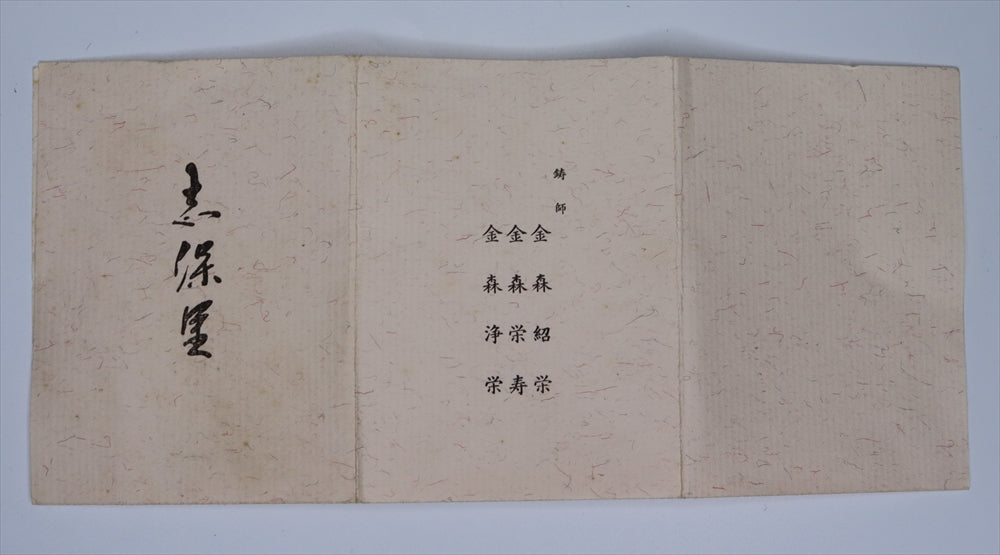 鋳師
金森紹栄
金森栄寿
金森浄栄
志保里